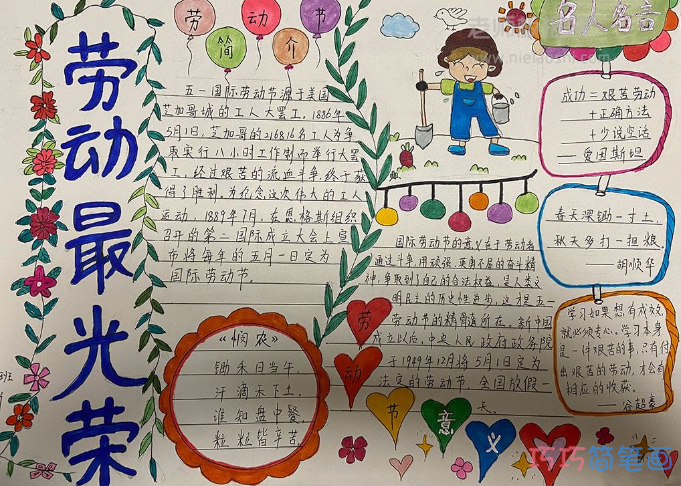 劳动最光荣
劳动节
简介
五一国际劳动节源于美国
芝加哥城的工人大罢工。1886年
5月1日,芝加哥的216816名工人为争
取实行八小时工作制而举行大罢
工,经过艰苦的流血斗争,终于获
得了胜利。为纪念这次伟大的工人
运动,1889年7月,在恩格斯组织
召开的第二国际成立大会上宣
布将每年的五月一日定为
国际劳动节。
《悯农》
锄禾日当午,
汗滴禾下土。
谁知盘中餐,
粒粒皆辛苦。
国际劳动节的意义在于劳动者
通过斗争,用顽强、英勇不屈的奋斗精
神,争取到了自己的合法权益,是人类文
明民主的历史性进步,这才是五一
劳动节的精髓所在。新中国
成立以后,中央人民政府政务院
于1949年12月将5月1日定为
法定的劳动节,全国放假一
天。
劳动节意义
名人名言
成功=艰苦劳动
+正确方法
+少说空话
——爱因斯坦
春天深锄一寸土,
秋天多打一担粮。
——胡顺华
学习如果想有成效,
就必须专心。学习本身
是一件艰苦的事,只有付
出艰苦的劳动,才会有
相应的收获。
——谷超豪
班
巧巧简笔画